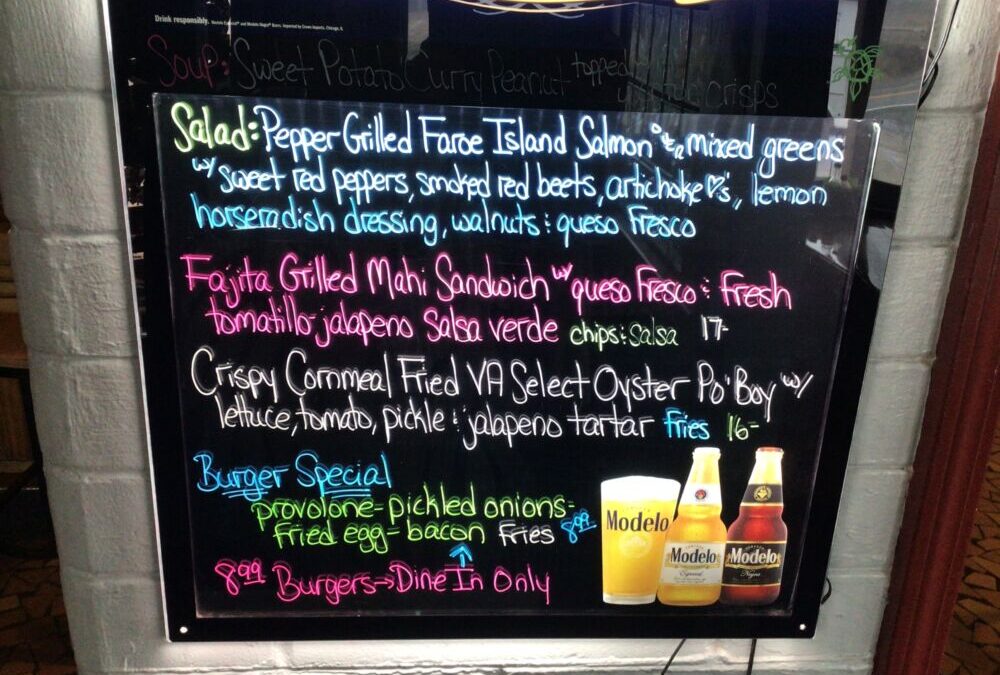 Drink responsibly.
Soup: Sweet Potato Curry Peanut topped
crisps
Salad: Pepper Grilled Faroe Island Salmon mixed greens
w/ sweet red peppers, smoked red beets, artichoke ♡'s, lemon
horseradish dressing, walnuts & queso Fresco
Fajita Grilled Mahi Sandwich w/ queso Fresco & Fresh
tomatillo-jalapeno Salsa verde chips & Salsa 17-
Crispy Cornmeal Fried VA Select Oyster Po'Boy w/
lettuce, tomato, pickle & jalapeno tartar Fries 16-
Burger Special
provolone-pickled onions-
Fried egg-bacon Fries 8.99
8.99 Burgers→Dine In Only
Modelo
Modelo
Especial
Modelo
Negra